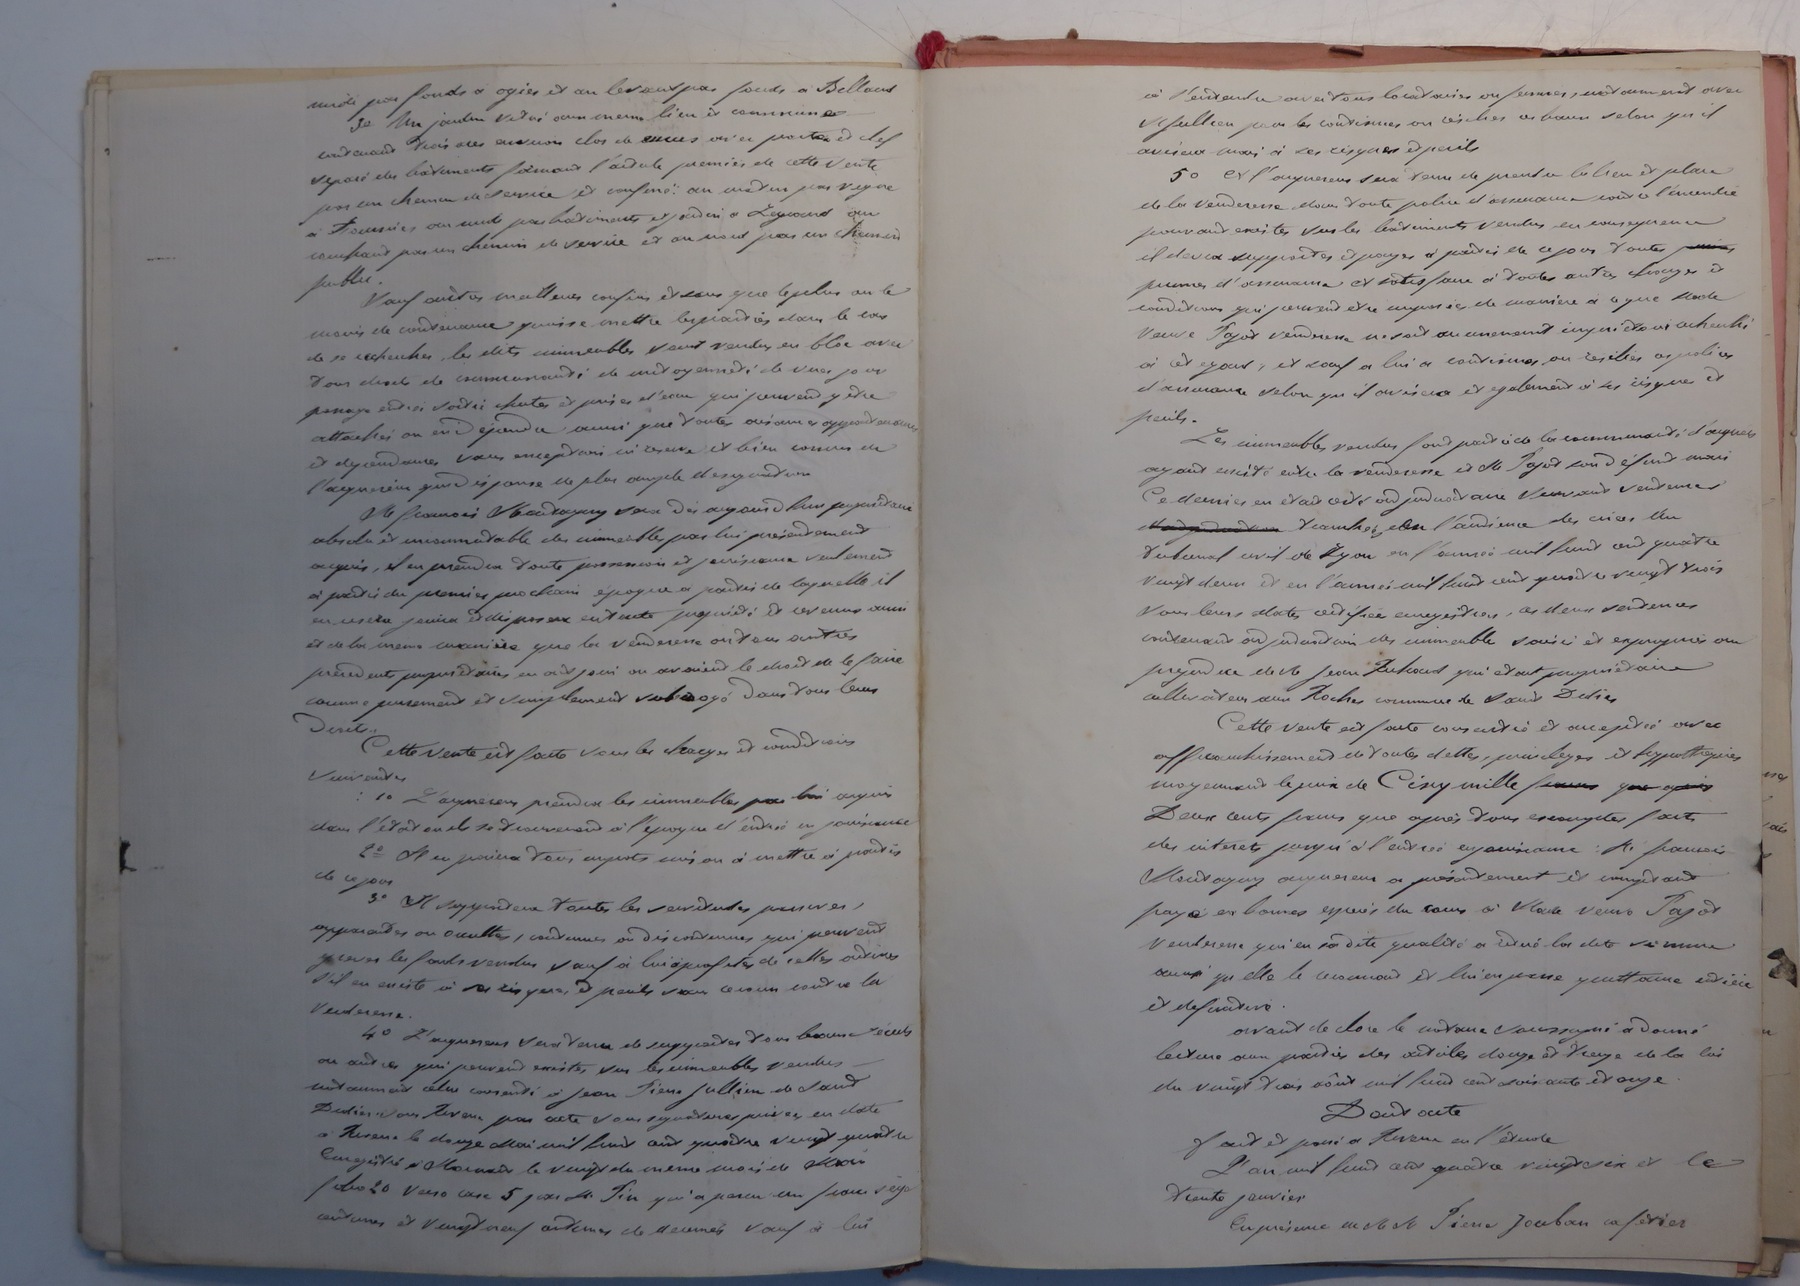 midi par fonds à ogier et au levant par fonds à Belland
3e Un jardin situé aux meme lieu et commune
contenant trois ares environ clos de murs avec portes et clef
séparé des bâtiments formant l'article premier de cette vente
par un chemin de service et confiné: au matin par vigne
à Fournier au midi par bâtiments et jardin à Legrand au
couchant par un chemin de service et au nord par un chemin
public.
Sauf autres meilleurs confins et sans que le plus ou le
moins de contenance puisse mettre les parties dans le cas
de se rechercher, les dits immeubles sont vendus en bloc avec
tous droits de communauté de mitoyenneté de vues jours
passage entrée sortie chutes et prises d'eau qui peuvent y être
attachés ou en dépendre, ainsi que toutes aisances appartenances
et dépendances sans exception ni réserve et bien connus de
l'acquéreur qui dispense de plus ample désignation
Mr francois sera dès aujourd'hui propriétaire
absolu et incommutable des immeubles par lui présentement
acquis, et en prendra toute possession et jouissance seulement
à partir du premier prochain époque à partir de laquelle il
en usera jouira et disposera en toute propriété et revenus ainsi
et de la meme manière que la venderesse ont eux autres
précédents propriétaires en ont joui ou avaient le droit de le faire
comme purement et simplement subrogé dans tous leurs
Droits.
Cette vente est faite sous les charges et conditions
suivantes
1o L'acquéreur prendra les immeubles par lui acquis
dans l'état où ils se trouveront à l'époque d'entrée en jouissance
2o Il en paiera tous impots mis ou à mettre à partir
de ce jour
3o Il supportera toutes les servitudes passives,
apparentes ou occultes, continues ou discontinues qui peuvent
grever les fonds vendus sauf à lui à profiter de celles actives
s'il en existe à ses risques et périls sans recours contre la
venderesse.
4o L'acquéreur sera tenu de supporter tous baux écrits
ou autres qui peuvent exister sur les immeubles vendus
notamment celui consenti à Jean Pierre Jullien de Saint
Didier sous Riverie par acte sous signatures privées en date
à Riverie le douze Mai mil huit cent quatre vingt quatre
Enregistré à Mornant le vingt du meme mois de Mai
folio 20 verso case 5 par Mr Pin qui a perçu un franc
centimes et vingt neuf centimes de décimes sauf à lui
à s'entendre avec tous locataires ou fermiers, notamment avec
Jullien pour les continuer ou résilier ces baux selon qu'il
avisera mais à ses risques et perils
5o Et l'acquéreur sera tenu de prendre le lieu et place
de la venderesse dans toute police d'assurance contre l'incendie
pouvant exister sur les bâtiments vendus en conséquence
il devra supporter et payer à partir de ce jour toutes
primes d'assurance et satisfaire à toutes autres charges et
conditions qui peuvent etre imposées de manière à ce que Made
veuve Pajot venderesse ne soit aucunement inquiétée ni recherchée
à cet égard, et sauf à lui à continuer, ou résilier ces polices
d'assurance selon qu'il avisera et également à ses risques et
perils.
Les immeubles vendus font partie de la communauté d'acquets
ayant existé entre la venderesse et Mr Pajot son défunt mari
Ce dernier en était adjudicataire suivant sentences
tranchées en l'audience des criées du
tribunal civil de Lyon en l'année mil huit cent quatre
vingt deux et en l'année mil huit cent quatre vingt trois
sous leurs dates certifiées enregistrées, ces deux sentences
contenant adjudication des immeuble saisis et expropriés au
prejudice de Mr Jean qui était propriétaire
cultivateur aux Roches commune de Saint Didier
Cette vente est faite consentie et acceptée avec
affranchissement de toutes dettes, privileges et hypothèques
moyennant le prix de Cinq mille
Deux cents francs que après tous escomptes faits
des interets jusqu'à l'entrée en jouissance : Mr francois
acquereur a présentement et comptant
payé en bonnes espèces du cours à Made veuve Pajot
venderesse qui en sa dite qualité a retiré la dite somme
ainsi qu'elle le reconnait et lui en passe quittance entière
et définitive.
avant de clore le notaire soussigné a donné
lecture aux parties des articles douze et treize de la loi
du vingt trois août mil huit cent soixante et onze.
Dont acte
fait et passé à Riverie en l'étude
L'an mil huit cent quatre vingt six et le
trente janvier
En présence de Mr Pierre Jouban cafetier